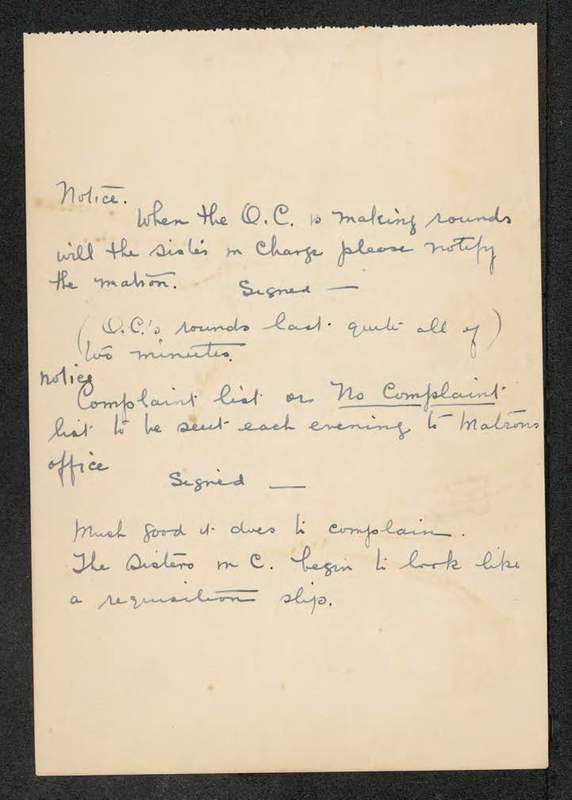 Notice.
When the O.C. is making rounds
will the sister in Charge please notify
the matron. Signed —
(O.C.'s rounds last quite all of)
two minutes.
Notice
Complaint list or No Complaint
list to be sent each evening to Matrons
office
Signed —
Much good it does to complain.
The Sisters in C. begin to look like
a requisition slip.